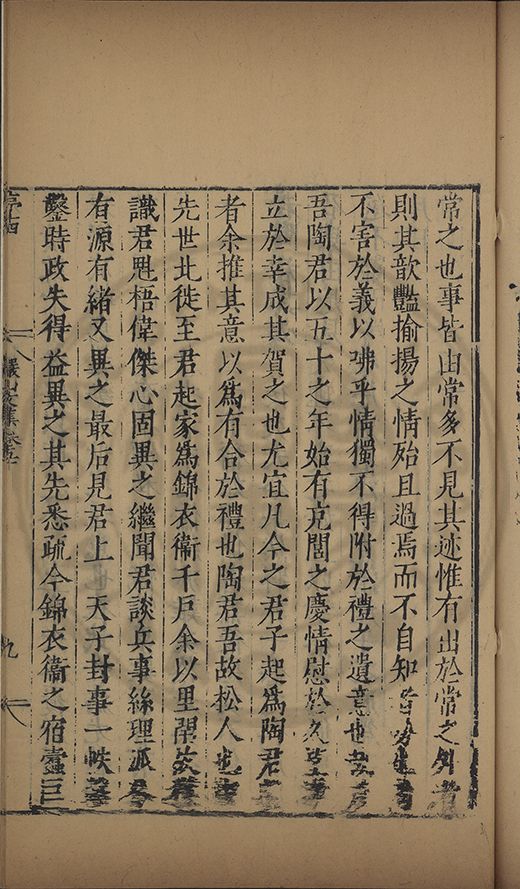 常之也事皆由常多不見其述惟有出於常之外者
則其歆豔揄揚之情殆且過焉而不自知
不害於義以咈乎情獨不得附於禮之遺意也
吾陶君以五十之年始有充閭之慶情慰於久
立於幸成其賀之也尤宜凡今之君子起爲陶君
者余推其意以爲有合於禮也陶君吾故松人也
先世北徙至君起家爲錦衣衞千戸余以里閈
識君慰梧偉傑心固異之繼聞君談兵事絲理派
有源有緒又異之最后見君上 天子封事一帙
鑿時政失得益異之其先悉疏今錦衣衞之宿蠹
九